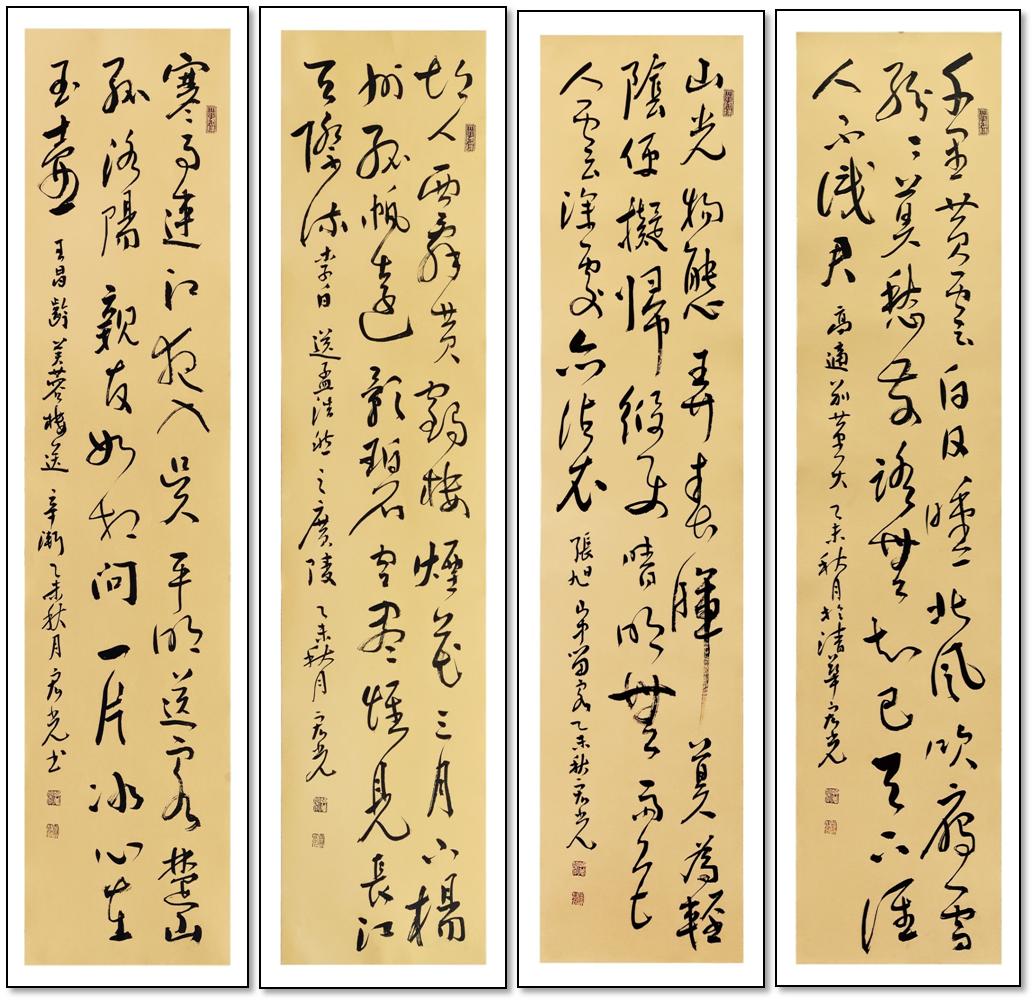 千里黄雲白日曛北風吹雁雪
紛紛莫愁前路無知己天下誰
人不識君 高適别董大 乙未秋月於清華宏光
山光物態弄春暉莫為輕
陰便擬歸縱使晴明無雨色
入雲深處亦沾衣 張旭 山中留客 乙未秋宏光
故人西辭黄鶴樓煙花三月下楊
州孤帆遠影碧空盡惟見長江
天際流 李白 送孟浩然之廣陵 乙未秋月宏光
寒雨連江夜入吳平明送客楚山
孤洛陽親友如相問一片冰心在
玉壺 王昌齡芙蓉樓送辛漸 乙未秋月宏光书